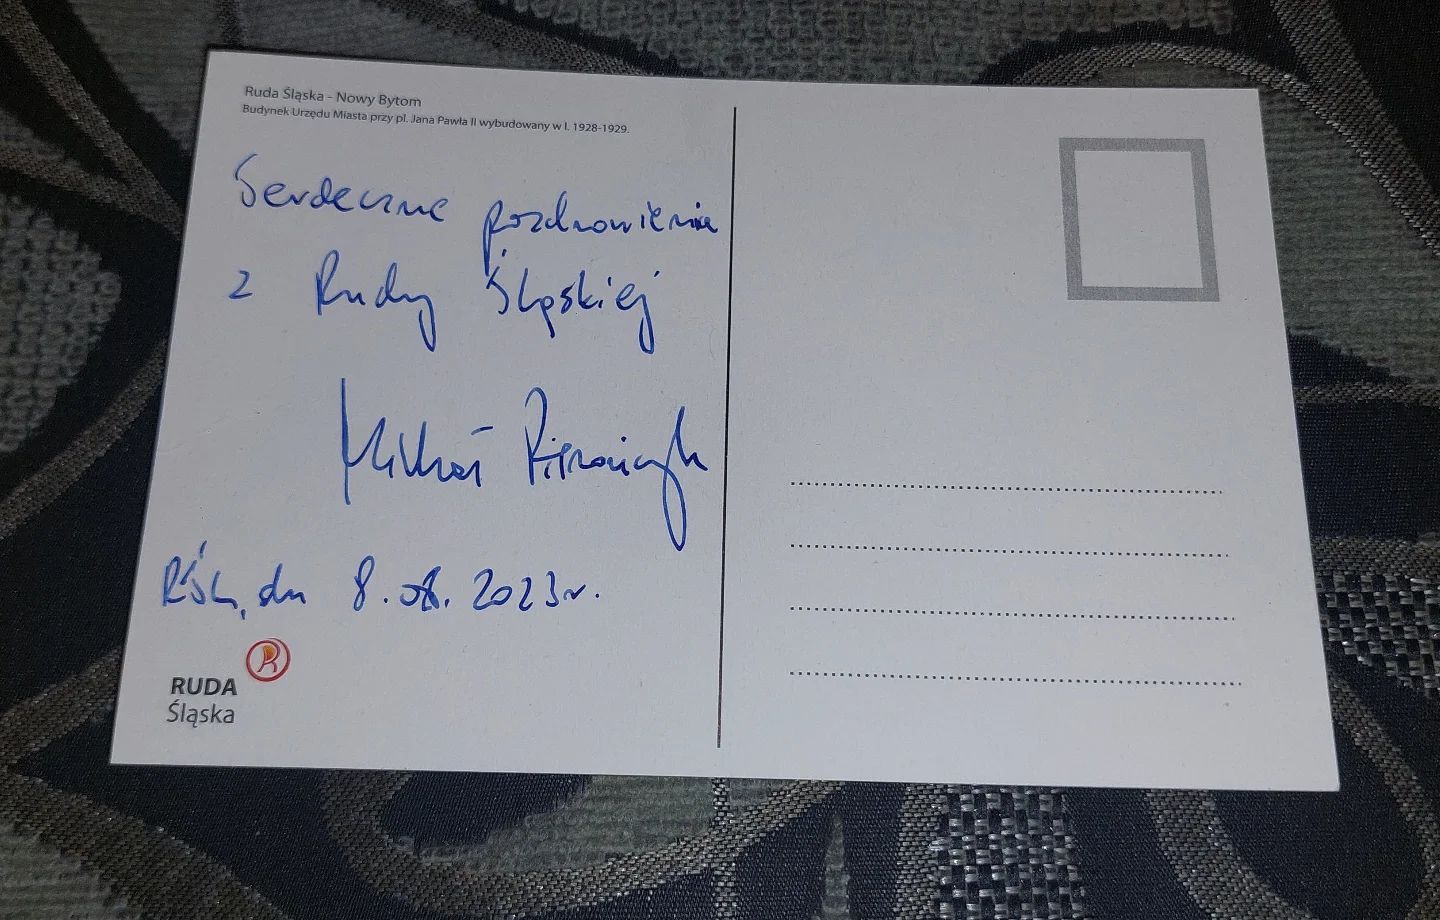 Ruda Śląska - Nowy Bytom
Budynek Urzędu Miasta przy pl. Jana Pawła II wybudowany w l. 1928-1929.
Serdeczne pozdrowienia
z Rudy Śląskiej
RŚl, dn 8.08.2023r.
RUDA
Śląska